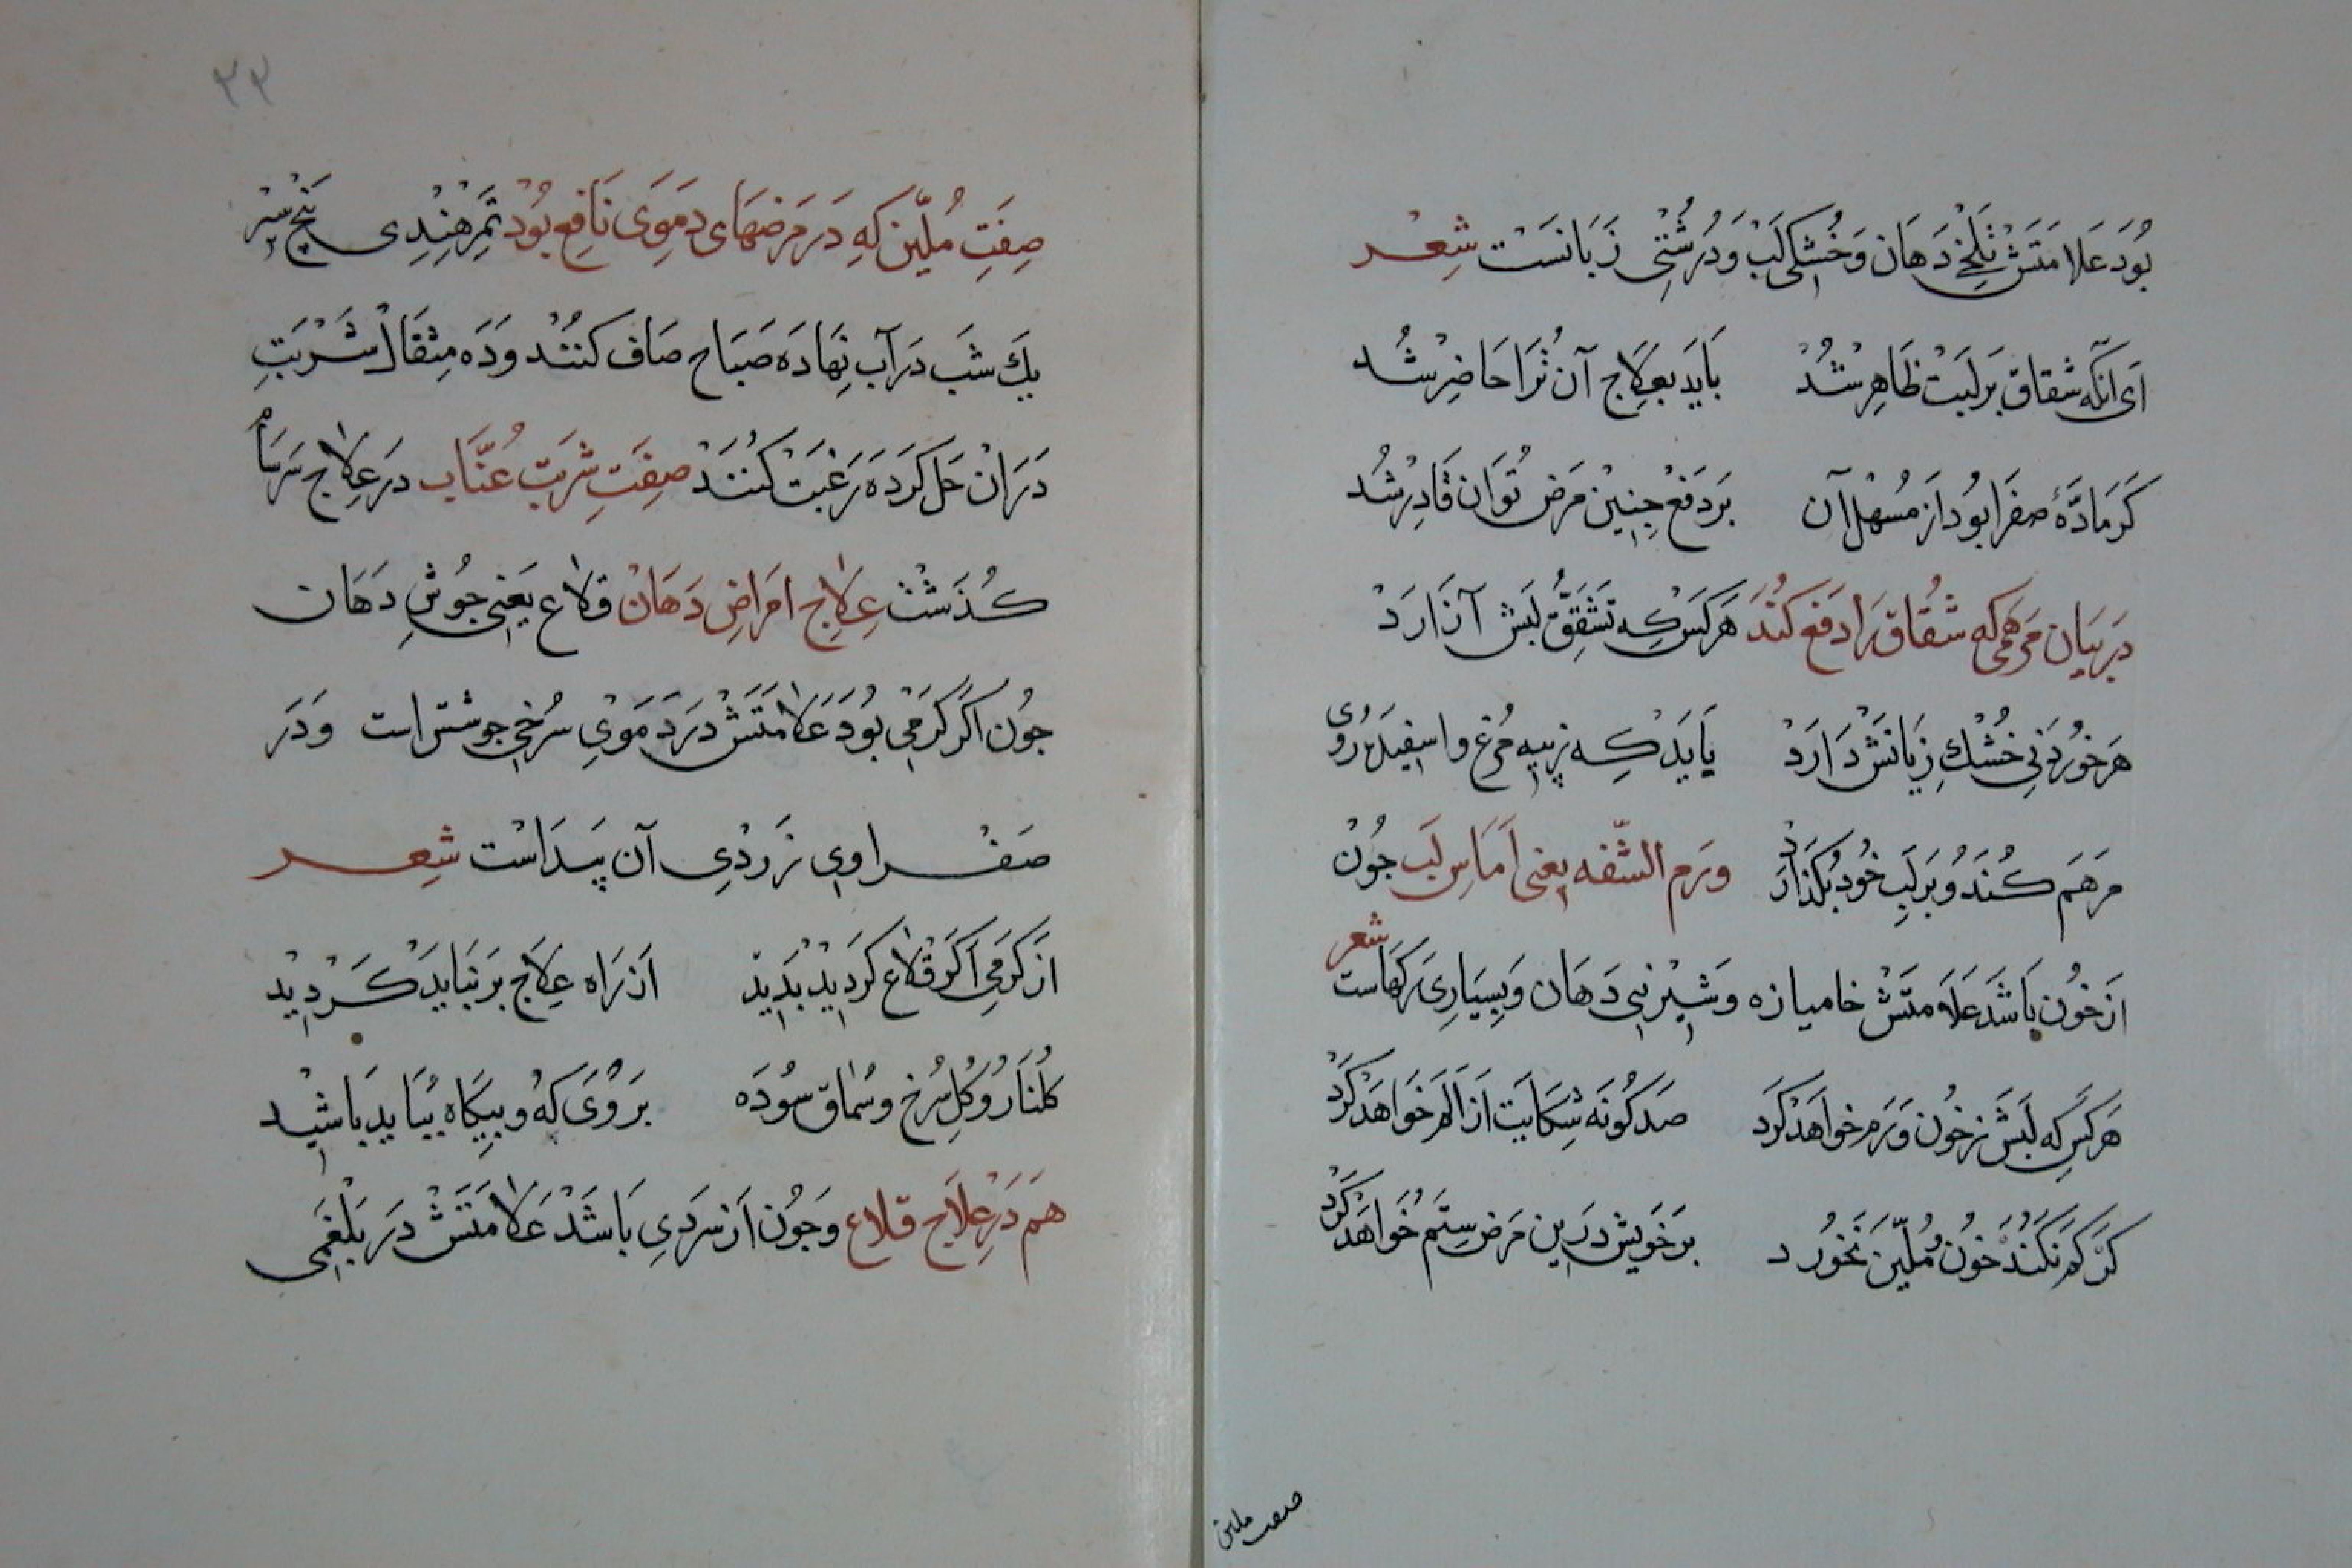 بُوَد عَلامَتَش تَلخِی دَهَان وَخُشکی لَب وَدُرُشتی زَبَانَست شِعر
اَی آنکه شقاق بَر لَبَت ظَاهِر شُد بَایَد بعِلَاج آن تُرَا حَاضِر شُد
کَر مَادَّهٔ صفرَا بوُد از مُسهل آن بَر دَفع چِنین مَرَض توَان قَادِر شُد
دَر بَیَان مَرهَمی که شُقاق رَا دَفع کُنَد هَرکَس که تَشَقُّقِ لَبَش آزَارَد
هَر خوُردَنیِ خُشك زِیَانَش دَارَد بَایَد کِه ز پیه مُرغ و اسفیدَروُی
مَرهَم کُنَد وُ بَر لَبِ خُود بُگذَارَد وَرَم الشّفه یعنی آمَاسِ لَب جوُن
شعر
از خوُن بَاشَد عَلَامتَش خامیازه وَشیرنیِ دَهَان وَبِسیَاریِ رَکهَاست
هَرکَس که لَبَش ز خوُن وَرَم خواهَد کَرد صَد کوُنَه شِکَایَت اَز اَلَم خَواهَد کَرد
کَر کَم نَکُنَد خوُن وُ مُلَیّن نَخوُرد بَر خَویش دَرین مَرَض سِتَم خَواهَد کَرد
صفت ملین
۳۳
صِفَتِ مُلَیّن کِه دَر مَرَضهَای دَمَوِی نَافِع بوُد تَمر هِندِی پَنج سیر
یك شَب دَر آب نِهَادَه صَبَاح صَاف کنُند وَدَه مِثقَال شَربَتِ
دَرَان حَل کَردَه رَغبَت کُنَند صِفَتِ شَربَت عُنَّاب دَر عِلَاج سَرسَام
کُذَشت عِلَاج امرَاض دَهَان قلَاع یَعنی جوُشِ دَهَان
جوُن اکَر کَرمی بوُد عَلَامَتَش دَر دَمَوی سُرخی جوشش است وَدَر
صَفراوی زَردیِ آن پیدَاست شِعر
از کَرمی اکَر قلَاع کَردید بَدید اَز رَاه عِلَاج بَر نبَاید کَردید
کلنَار وُ کُلِ سُرخ و سُمَاق سوُدَه بَر وَی کَه وُ بیکَاه ببَاید بَاشید
هَم دَر عِلَاج قلاع وَجوُن اَز سَردی بَاشَد عَلَامَتَش دَر بَلغَمی